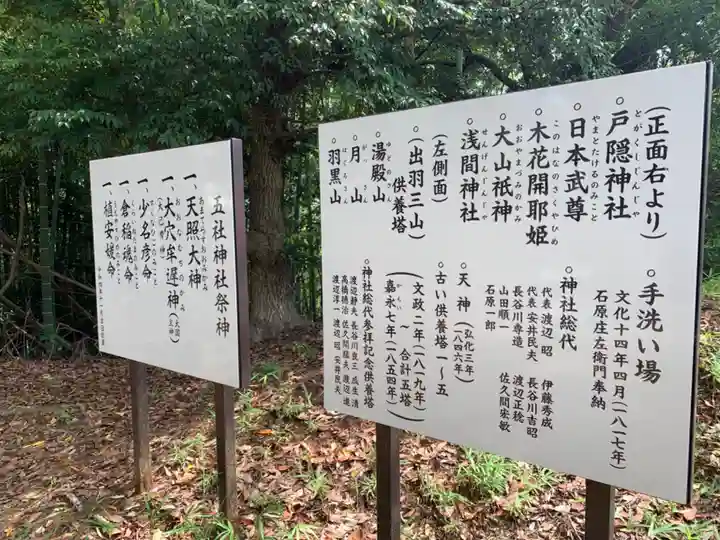 五社神社祭神
一、天照大神
あまてらすおおみかみ
一、大穴牟遅神(大国主神)
一、少名彦命
一、倉稲魂命
一、植安媛命
(正面右より)
○戸隠神社
とがくしじんじゃ
○日本武尊
やまとたけるのみこと
○木花開耶姫
このはなのさくやひめ
○大山祇神
おおやまづみのかみ
○浅間神社
せんげんじんじゃ
(左側面)
(出羽三山
供養塔
○湯殿山
ゆどのさん
○月山
がっさん
○羽黒山
はぐろさん
○手洗い場
文化十四年四月(一八一七年)
石原庄左衛門奉納
○神社総代
代表 渡辺 昭 伊藤秀成
代表 安井民夫 長谷川吉昭
長谷川専造 渡辺正稔
山田順一 佐久間宏敏
石原一郎
○天神(弘化三年)
(一八四六年)
○古い供養塔 一〜五
(文政二年(一八一九年)
〜 合計五塔
嘉永七年(一八五四年)
かえい
○神社総代参拝記念供養塔
渡辺静夫 長谷川良三 成生清
高橋徳治 佐久間猛夫 渡辺進
渡辺淳一 渡辺昭 安井民夫